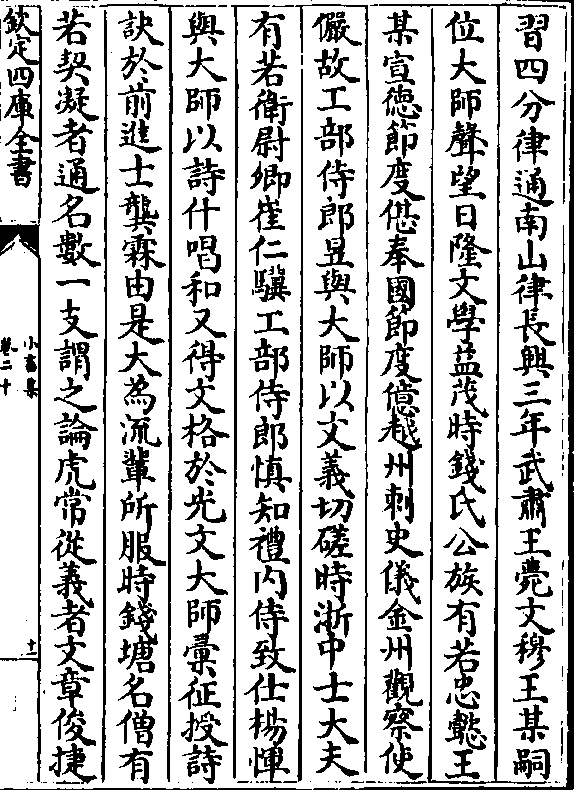 習四分律通南山律長興三年武肅王薨文穆王某嗣
位大師聲望日隆文學益茂時錢氏公族有若忠懿王
某宣德節度偡奉國節度億越州刺史儀金州觀察使
儼故工部侍郎昱與大師以文義切磋時浙中士大夫
有若衛尉卿崔仁驥工部侍郎慎知禮內侍致仕楊惲
與大師以詩什唱和又得文格於光文大師彙征授詩
訣於前進士龔霖由是大為流輩所服時錢塘名僧有
若契凝者通名數一支謂之論虎常從義者文章俊捷
欽定四庫全書
小畜集
卷二十
十一